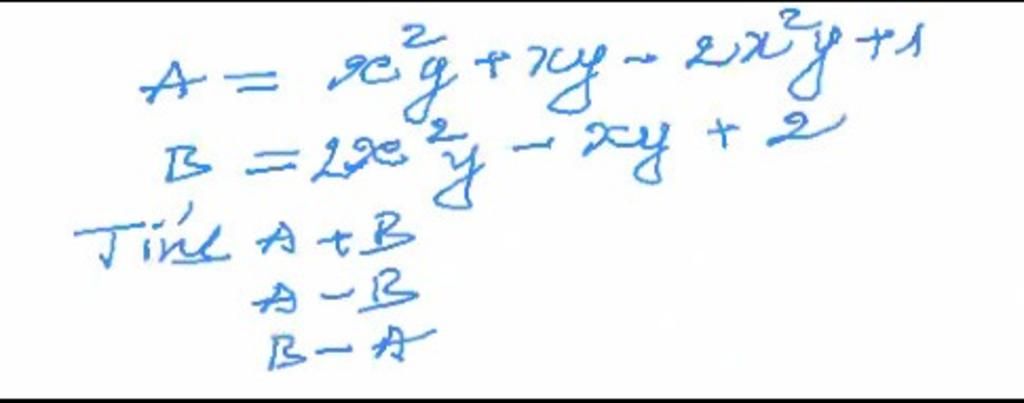 A = x²y + xy - 2x²y + 1
B = 2x²y - xy + 2
Tính A + B
A - B
B - A